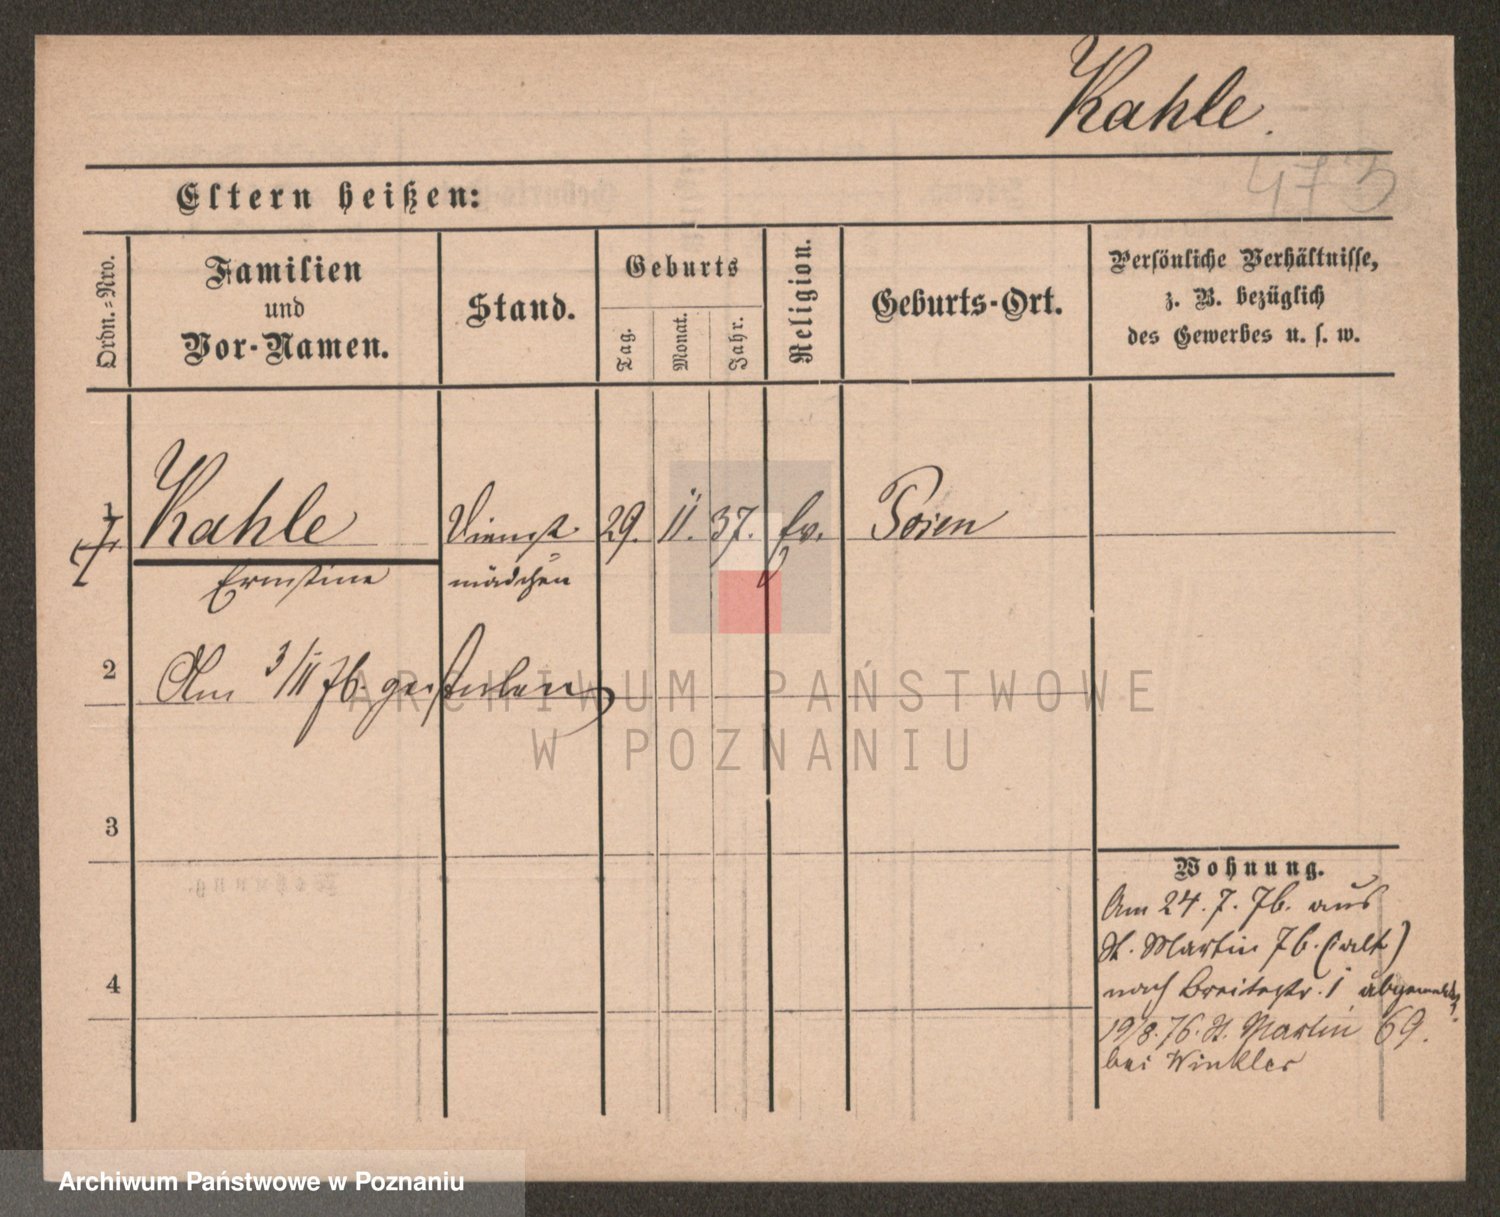 Kahle.
473
Eltern heißen:
Ordn.-Nro.
Familien
und
Vor-Namen.
Stand.
Geburts
Tag.
Monat.
Jahr.
Religion.
Geburts-Ort.
Persönliche Verhältnisse,
z. B. bezüglich
des Gewerbes u. s. w.
1
Kahle Dienst 29. 11. 37. Ev. Posen
Ernstine mädchen
2
Am 3/11 76. gestorben
3
4
Wohnung.
Am 24. 7. 76. aus
St. Martin 76. (alt)
nach Breitestr. 1 abgemeldet
19/8. 76. St. Martin 69.
bei Winkler
ARCHIWUM PAŃSTWOWE
W POZNANIU
Archiwum Państwowe w Poznaniu